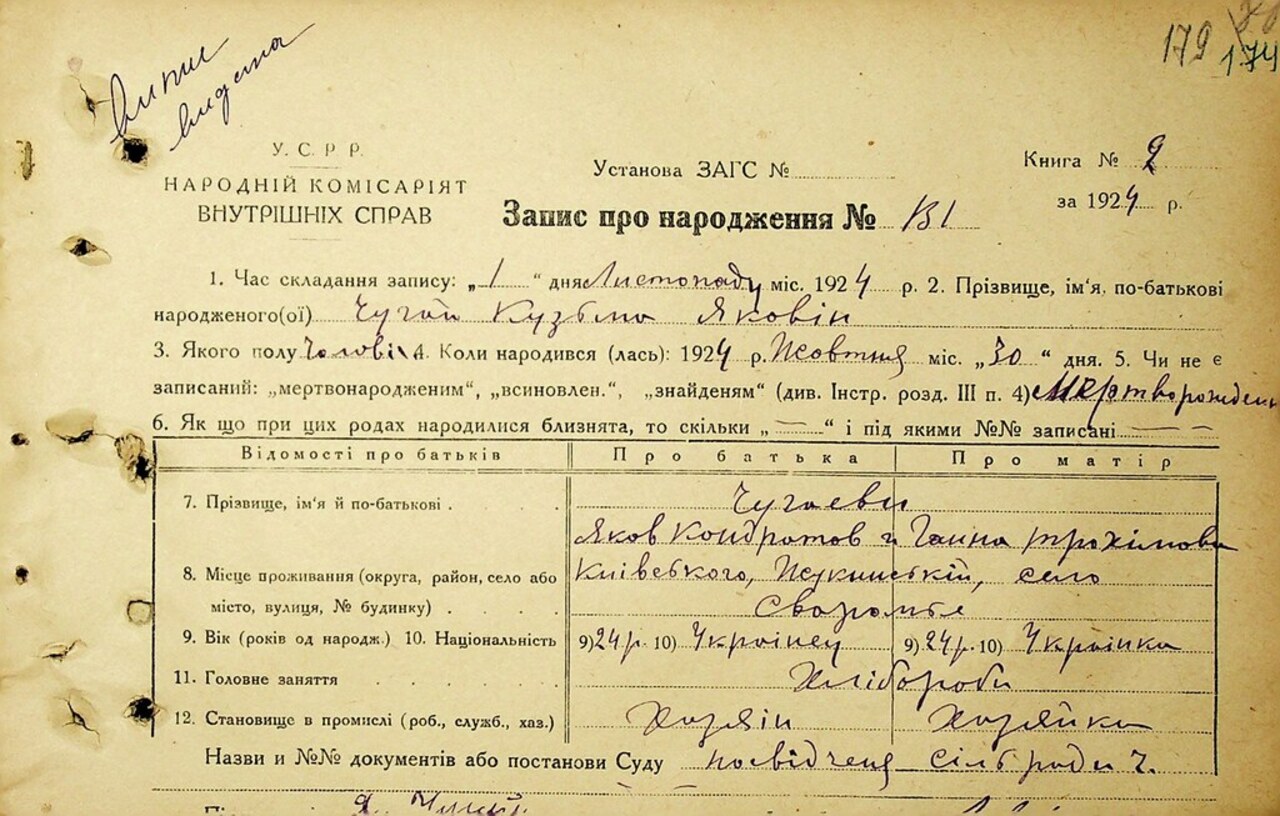 179
174
випис
видана
У. С. Р. Р.
НАРОДНІЙ КОМІСАРІЯТ
ВНУТРІШНІХ СПРАВ
Установа ЗАГС №
Книга № 2
за 1924 р.
Запис про народження № 131
1. Час складання запису: „1“ дня Листопаду міс. 1924 р. 2. Прізвище, ім'я, по-батькові
народженого(ої) Чугай Кузьма Яковін
3. Якого полу Чоловік 4. Коли народився (лась): 1924 р. Жовтня міс. „30“ дня. 5. Чи не є
записаний: „мертвонародженим“, „всиновлен.“, „знайденям“ (див. Інстр. розд. III п. 4)
6. Як що при цих родах народилися близнята, то скільки „—“ і під якими №№ записані — —
Відомості про батьків Про батька Про матір
7. Прізвище, ім'я й по-батькові . . . . Чугаеви
Яков Кондратов и Ганна Трохімова
8. Місце проживання (округа, район, село або Київського, село
місто, вулиця, № будинку) . . . . Сваромье
9. Вік (років од народж.) 10. Національність 9) 24 р. 10) Украінец 9) 24 р. 10) Украінка
11. Головне заняття . . . . . Хлібороби
12. Становище в промислі (роб., служб., хаз.) Хозяін Хозяйка
Назви и №№ документів або постанови Суду посвідченя сільради